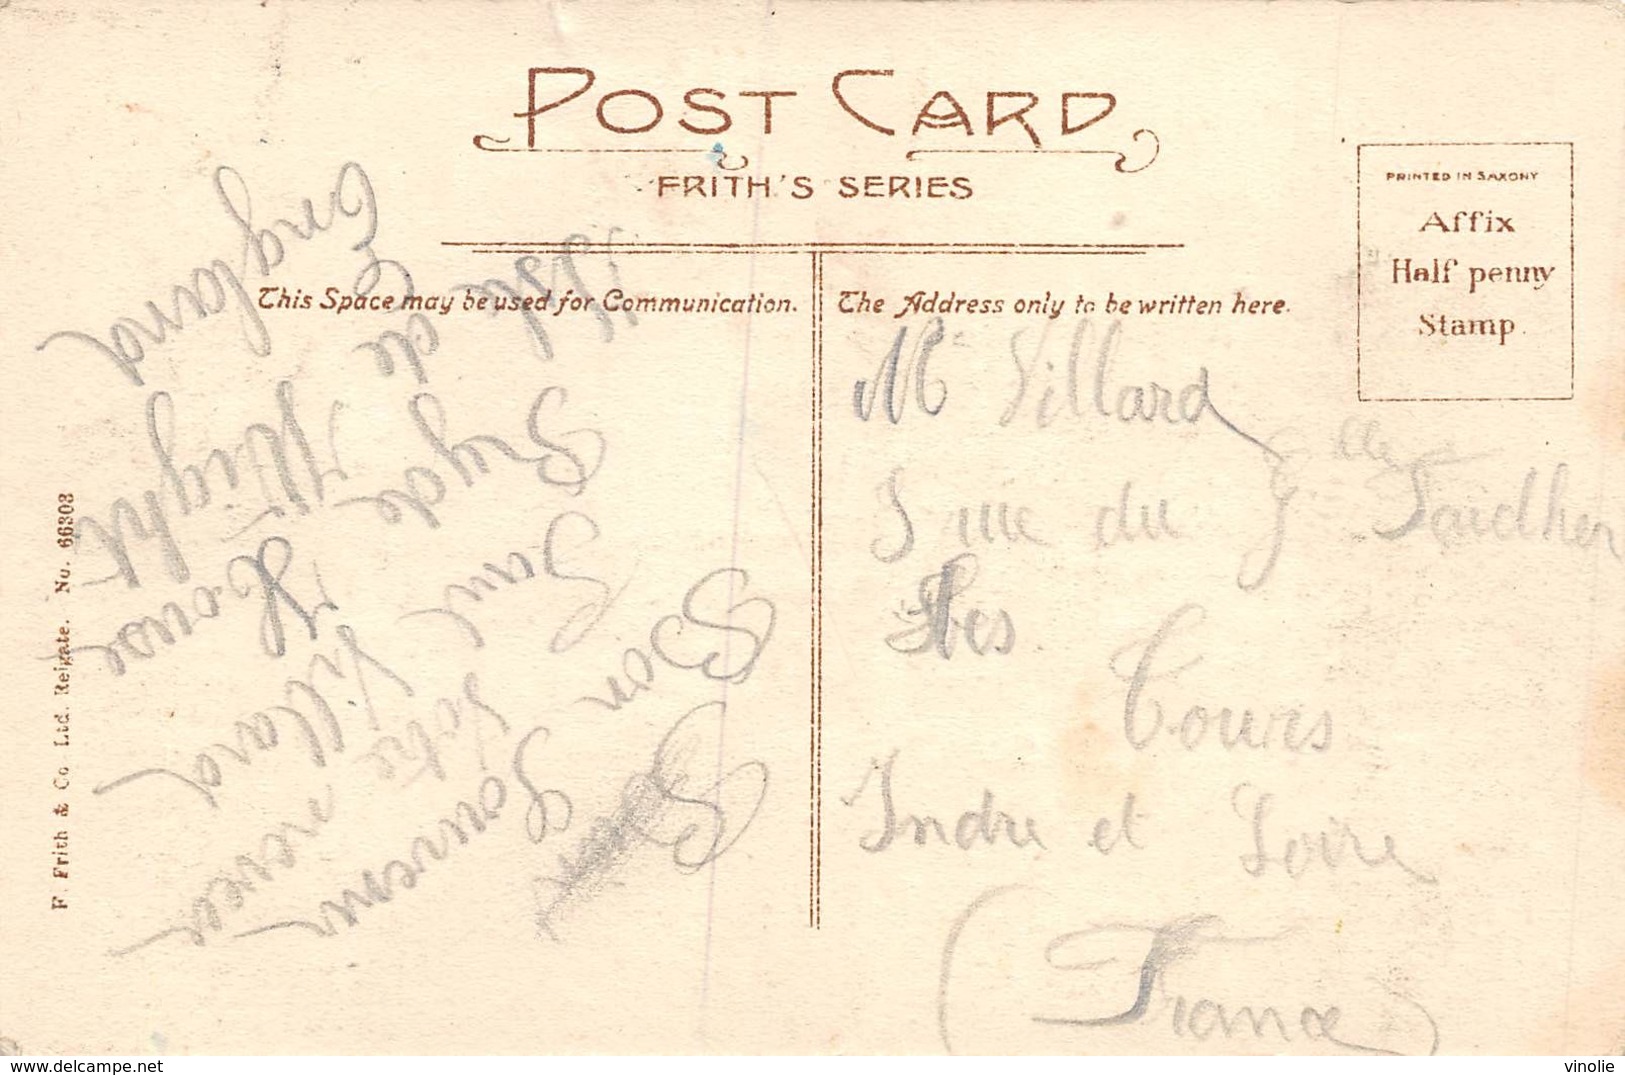 POST CARD
FRITH'S SERIES
PRINTED IN SAXONY
Affix
Half penny
Stamp
This Space may be used for Communication.
The Address only to be written here.
Bon Souvenir
Votre neveu
Villard
House
Ryde
Isle de Wight
England
Mr Villard
rue du Gal Faidher
Tours
Indre et Loire
(France)
F. Frith & Co. Ltd. Reigate. No. 66303
vinolie